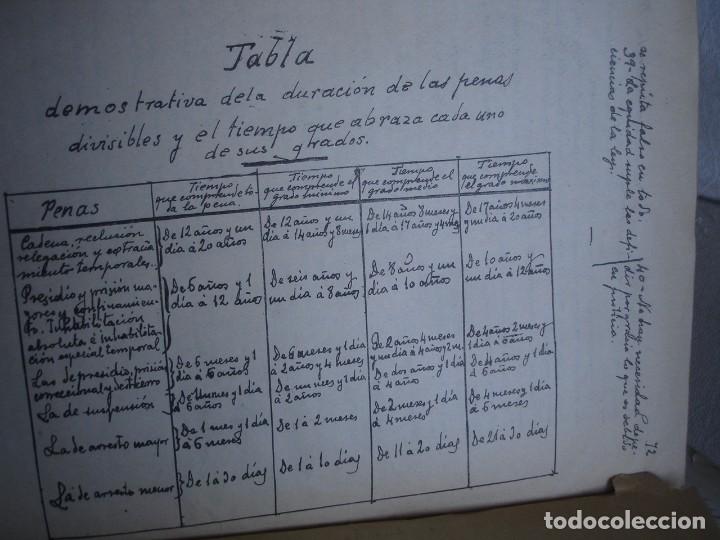 Tabla
demostrativa de la duración de las penas
divisibles y el tiempo que abraza cada uno
de sus grados.
Penas
Tiempo
que comprende to-
da la pena.
Tiempo
que comprende el
grado minimo
Tiempo
que comprende el
grado medio
Tiempo
que comprende
el grado maximo
Cadena, reclusión
relegación y extraña
miento temporales.
De 12 años y un
dia á 20 años
De 12 años y un
dia á 14 años y 8 meses
De 14 años 8 meses y
1 dia á 17 años y 4 meses
De 17 años 4 meses
y un dia á 20 años
Presidio y prisión ma
yores y confinamien-
to. Inhabilitación
absoluta é inhabilita-
ción especial temporal
De 6 años y 1
día á 12 años
De seis años y
un dia á 8 años
De 8 años y un
dia á 10 años
De 10 años y
un dia á 12 años
Las de presidio, prisión
correccional y destierro
De 6 meses y 1
dia á 6 años
De 6 meses y 1 día
á 2 años y 4 meses
De 2 años 4 meses
y un dia á 4 años y 2 m
De 4 años 2 meses y
1 dia á 6 años
La de suspensión
De 1 mes y 1 dia
á 6 años
De un mes y 1 dia
á 2 años
De dos años y 1 día
á 4 años
De 4 años y 1 día
á 6 años
La de arresto mayor
De 1 mes y 1 día
á 6 meses
De 1 á 2 meses
De 2 meses y 1 día
á 4 meses
De 4 meses y 1 día
á 6 meses
La de arresto menor
De 1 á 30 días
De 1 á 10 días
De 11 á 20 días
De 21 á 30 días
se reputa falso en todo.
39- La equidad suple las defi-
ciencias de la ley.
40- No hay necesidad de pe-
dir por gracia lo que es debido
en justicia.
72
todocoleccion
todocoleccion.net